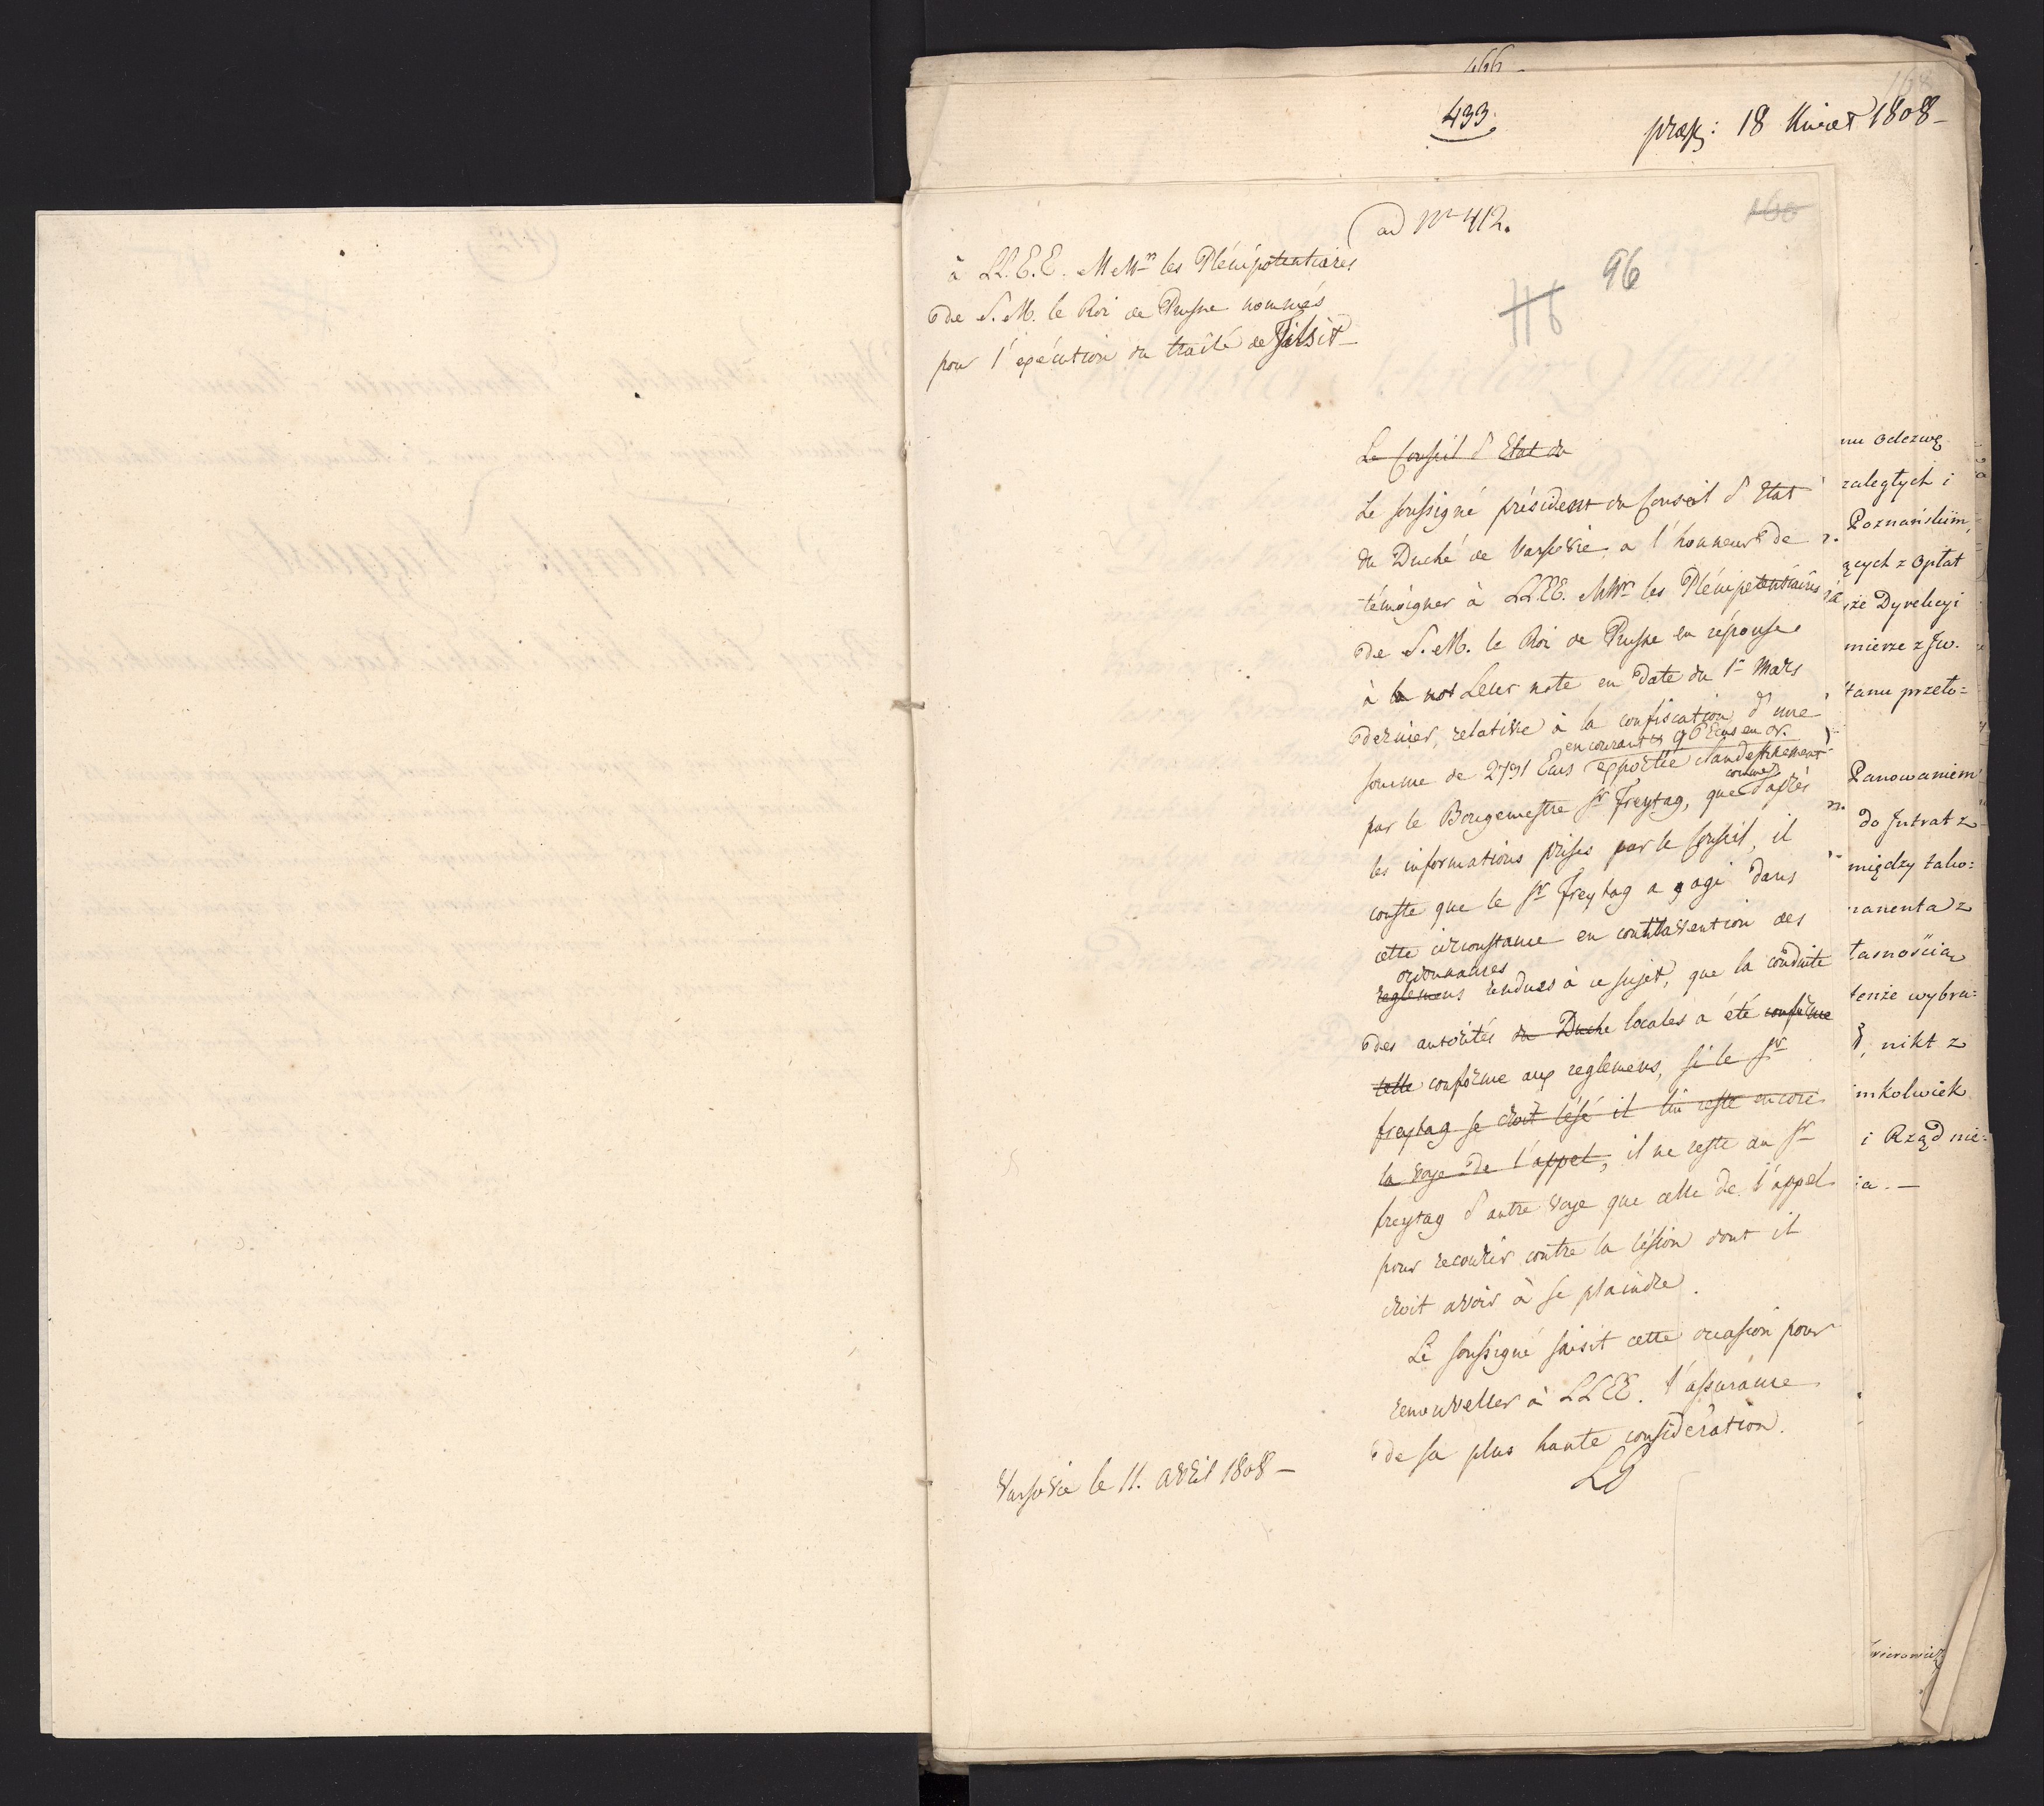 466
433.
præs: 18 Kwiet 1808
ad Nr 412.
160
96
116
à LL.E.E. M Mrs les Plénipotentiaires
de S. M. le Roi de Prusse nommés
pour l'exécution du traité de Tilsit
Le Conseil d'Etat du
Le soussigné président du Conseil d'Etat
du Duché de Varsovie a l'honneur de
témoigner à LL.EE. MMrs les Plénipotentiaires
de S. M. le Roi de Prusse en réponse
à la not Leur note en date du 1r Mars
dernier, relative à la confiscation d'une
en courant & 96 Ecus en or.
somme de 2791 Ecus exportée clandestinement
comme
par le Bourgemestre Sr Freytag, que d'après
les informations prises par le Conseil, il
conste que le Sr Freytag a agi dans
cette circonstance en contravention des
ordonnances
reglemens rendues à ce sujet, que la conduite
des autorités du Duche locales a été conforme
telle conforme aux reglemens, si le Sr
freytag se croit lésé il lui reste encore
la voye de l'appel, il ne reste au Sr
freytag d'autre voye que celle de l'appel
pour recourir contre la lésion dont il
croit avoir à se plaindre.
Le soussigné saisit cette occasion pour
renouveller à LLEE. l'assurance
de sa plus haute considération.
Varsovie le 11. Avril 1808
nu Odezwę
zaległych i
Poznańskim,
ących z Opłat
że Dyrekcyi
mierze z Jw.
Stanu przeło=
Panowaniem
do Intrat z
między tako=
manenta z
łasnościa
tenże wybra=
nikt z
imkolwiek
i Rząd nie=
ia. —